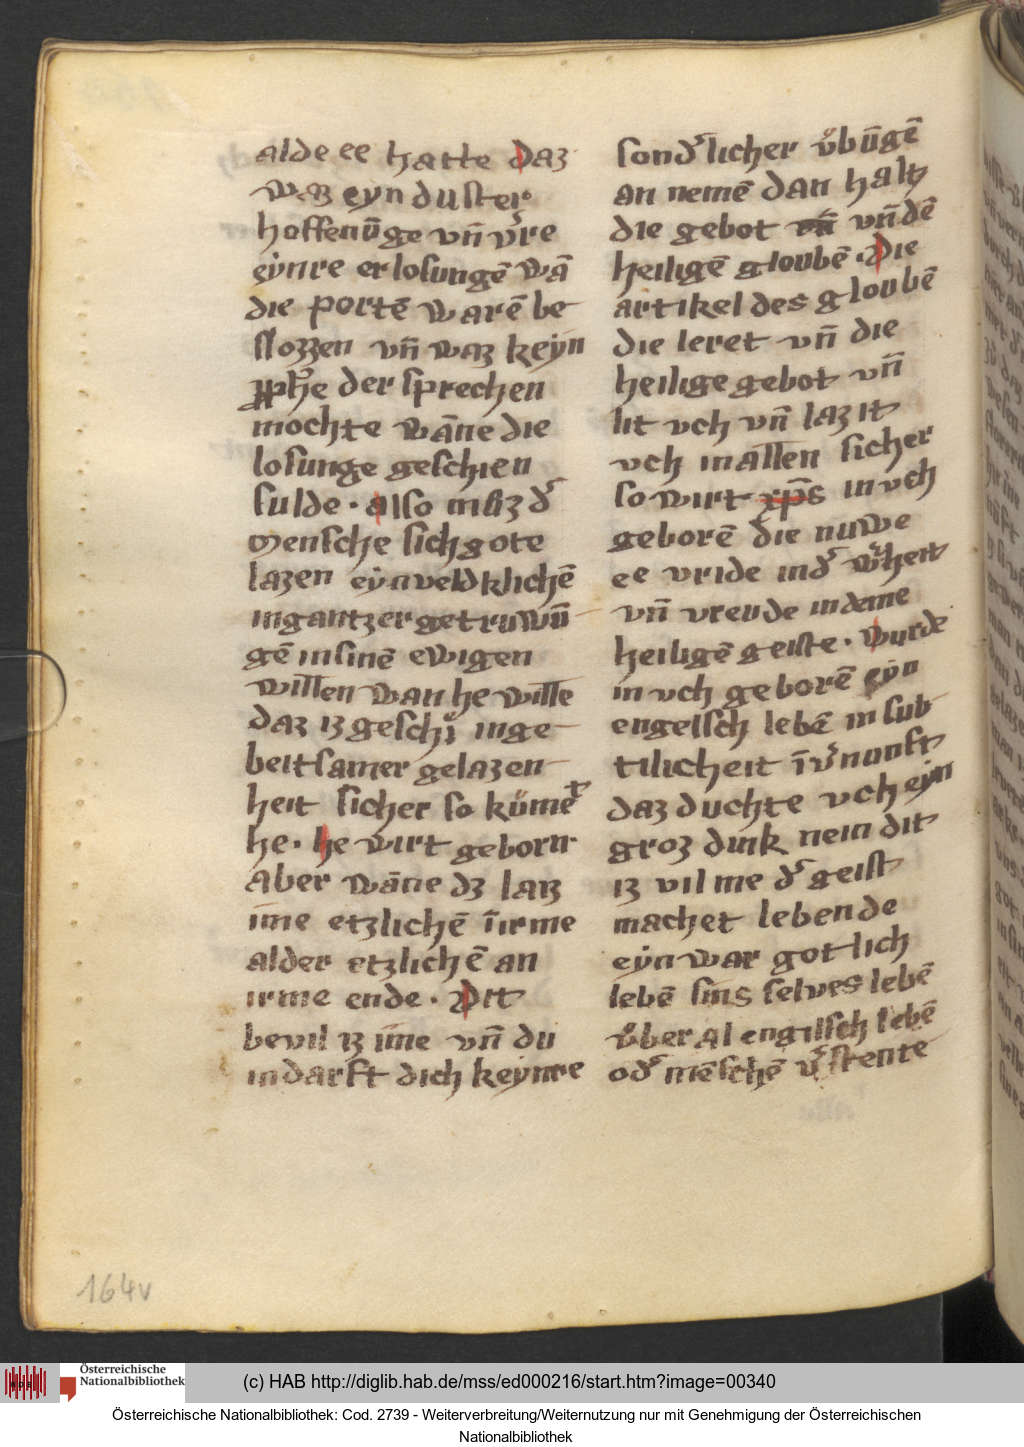 alde ee hatte daz
waz eyn duster
hoffenūge vn̄ vͬre
eẏnre erlosungē wā
die portē warē be
slozzen vn̄ waz keẏn
ꝓph̄e der sprechen
mochte wān̄e die
losunge geschien
sulde · also muz dͬ
mensche sich gote
lazen eẏnveldklichē
ingantzer getruwū
gē insinē ewigen
willen wan he wille
daz iz geschı̊ inge
beitsamer gelazen
heit sicher so kūmeͭ
he · he wirt geborn
aber wān̄e dz laz
ime etzlichē ī irme
alder etzlichē an
irme ende · Dit
bevil iz ime vn̄ du
indarft dich keẏnre
sondͬlicher v̊būgē
an nemē dan haltz
die gebot vn̄ vn̄ dē
heiligē gloubē · Die
artikel des gloubē
die leret vn̄ die
heilige gebot vn̄
lit vch vn̄ lazit
vch in allen sicher
so wirt xp̄s in vch
geborē die nuwe
ee vride indͬ wͬheit
vn̄ vreude indeme
heiligē geiste · wurde
in vch geborē eẏn
engelsch lebē in sub
tilicheit ī vͬnunft
daz duchte vch eẏn
groz dink nein dit
iz vil me dͬ geist
machet lebende
eẏn war gotlich
lebē sins selves lebē
v̊ber al engilsch lebē
odͬ mēschē vͬstente
164v
Österreichische
Nationalbibliothek
(c) HAB http://diglib.hab.de/mss/ed000216/start.htm?image=00340
Österreichische Nationalbibliothek: Cod. 2739 - Weiterverbreitung/Weiternutzung nur mit Genehmigung der Österreichischen
Nationalbibliothek